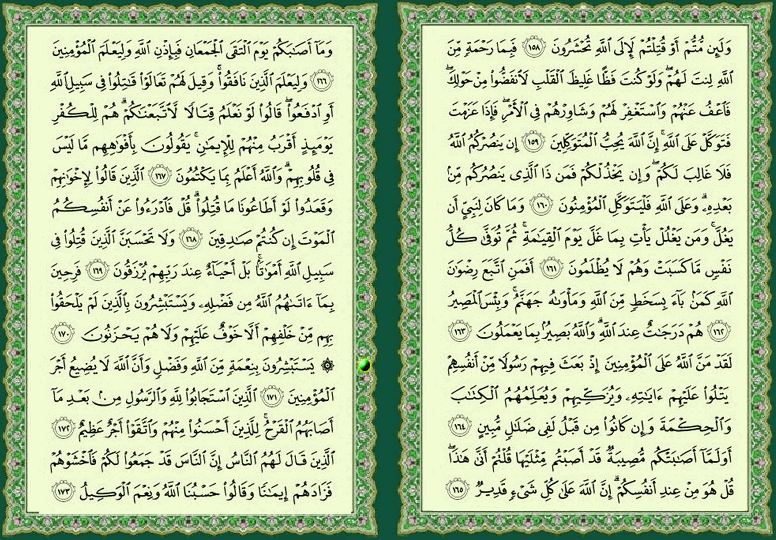 وَلَئِن مُّتُّمْ أَوْ قُتِلْتُمْ لَإِلَى ٱللَّهِ تُحْشَرُونَ ١٥٨ فَبِمَا رَحْمَةٍ مِّنَ
ٱللَّهِ لِنتَ لَهُمْ ۖ وَلَوْ كُنتَ فَظًّا غَلِيظَ ٱلْقَلْبِ لَٱنفَضُّوا۟ مِنْ حَوْلِكَ ۖ
فَٱعْفُ عَنْهُمْ وَٱسْتَغْفِرْ لَهُمْ وَشَاوِرْهُمْ فِى ٱلْأَمْرِ ۖ فَإِذَا عَزَمْتَ
فَتَوَكَّلْ عَلَى ٱللَّهِ ۚ إِنَّ ٱللَّهَ يُحِبُّ ٱلْمُتَوَكِّلِينَ ١٥٩ إِن يَنصُرْكُمُ ٱللَّهُ
فَلَا غَالِبَ لَكُمْ ۖ وَإِن يَخْذُلْكُمْ فَمَن ذَا ٱلَّذِى يَنصُرُكُم مِّنۢ
بَعْدِهِۦ ۗ وَعَلَى ٱللَّهِ فَلْيَتَوَكَّلِ ٱلْمُؤْمِنُونَ ١٦٠ وَمَا كَانَ لِنَبِىٍّ أَن
يَغُلَّ ۚ وَمَن يَغْلُلْ يَأْتِ بِمَا غَلَّ يَوْمَ ٱلْقِيَـٰمَةِ ۚ ثُمَّ تُوَفَّىٰ كُلُّ
نَفْسٍ مَّا كَسَبَتْ وَهُمْ لَا يُظْلَمُونَ ١٦١ أَفَمَنِ ٱتَّبَعَ رِضْوَٰنَ
ٱللَّهِ كَمَنۢ بَآءَ بِسَخَطٍ مِّنَ ٱللَّهِ وَمَأْوَىٰهُ جَهَنَّمُ ۚ وَبِئْسَ ٱلْمَصِيرُ
١٦٢ هُمْ دَرَجَـٰتٌ عِندَ ٱللَّهِ ۗ وَٱللَّهُ بَصِيرٌۢ بِمَا يَعْمَلُونَ ١٦٣
لَقَدْ مَنَّ ٱللَّهُ عَلَى ٱلْمُؤْمِنِينَ إِذْ بَعَثَ فِيهِمْ رَسُولًا مِّنْ أَنفُسِهِمْ
يَتْلُوا۟ عَلَيْهِمْ ءَايَـٰتِهِۦ وَيُزَكِّيهِمْ وَيُعَلِّمُهُمُ ٱلْكِتَـٰبَ
وَٱلْحِكْمَةَ وَإِن كَانُوا۟ مِن قَبْلُ لَفِى ضَلَـٰلٍ مُّبِينٍ ١٦٤
أَوَلَمَّآ أَصَـٰبَتْكُم مُّصِيبَةٌ قَدْ أَصَبْتُم مِّثْلَيْهَا قُلْتُمْ أَنَّىٰ هَـٰذَا ۖ
قُلْ هُوَ مِنْ عِندِ أَنفُسِكُمْ ۗ إِنَّ ٱللَّهَ عَلَىٰ كُلِّ شَىْءٍ قَدِيرٌ ١٦٥
وَمَآ أَصَـٰبَكُمْ يَوْمَ ٱلْتَقَى ٱلْجَمْعَانِ فَبِإِذْنِ ٱللَّهِ وَلِيَعْلَمَ ٱلْمُؤْمِنِينَ
١٦٦ وَلِيَعْلَمَ ٱلَّذِينَ نَافَقُوا۟ ۚ وَقِيلَ لَهُمْ تَعَالَوْا۟ قَـٰتِلُوا۟ فِى سَبِيلِ ٱللَّهِ
أَوِ ٱدْفَعُوا۟ ۖ قَالُوا۟ لَوْ نَعْلَمُ قِتَالًا لَّٱتَّبَعْنَـٰكُمْ ۗ هُمْ لِلْكُفْرِ
يَوْمَئِذٍ أَقْرَبُ مِنْهُمْ لِلْإِيمَـٰنِ ۚ يَقُولُونَ بِأَفْوَٰهِهِم مَّا لَيْسَ
فِى قُلُوبِهِمْ ۗ وَٱللَّهُ أَعْلَمُ بِمَا يَكْتُمُونَ ١٦٧ ٱلَّذِينَ قَالُوا۟ لِإِخْوَٰنِهِمْ
وَقَعَدُوا۟ لَوْ أَطَاعُونَا مَا قُتِلُوا۟ ۗ قُلْ فَٱدْرَءُوا۟ عَنْ أَنفُسِكُمُ
ٱلْمَوْتَ إِن كُنتُمْ صَـٰدِقِينَ ١٦٨ وَلَا تَحْسَبَنَّ ٱلَّذِينَ قُتِلُوا۟ فِى
سَبِيلِ ٱللَّهِ أَمْوَٰتًۢا ۚ بَلْ أَحْيَآءٌ عِندَ رَبِّهِمْ يُرْزَقُونَ ١٦٩ فَرِحِينَ
بِمَآ ءَاتَىٰهُمُ ٱللَّهُ مِن فَضْلِهِۦ وَيَسْتَبْشِرُونَ بِٱلَّذِينَ لَمْ يَلْحَقُوا۟
بِهِم مِّنْ خَلْفِهِمْ أَلَّا خَوْفٌ عَلَيْهِمْ وَلَا هُمْ يَحْزَنُونَ ١٧٠
۞ يَسْتَبْشِرُونَ بِنِعْمَةٍ مِّنَ ٱللَّهِ وَفَضْلٍ وَأَنَّ ٱللَّهَ لَا يُضِيعُ أَجْرَ
ٱلْمُؤْمِنِينَ ١٧١ ٱلَّذِينَ ٱسْتَجَابُوا۟ لِلَّهِ وَٱلرَّسُولِ مِنۢ بَعْدِ مَآ
أَصَابَهُمُ ٱلْقَرْحُ ۚ لِلَّذِينَ أَحْسَنُوا۟ مِنْهُمْ وَٱتَّقَوْا۟ أَجْرٌ عَظِيمٌ ١٧٢
ٱلَّذِينَ قَالَ لَهُمُ ٱلنَّاسُ إِنَّ ٱلنَّاسَ قَدْ جَمَعُوا۟ لَكُمْ فَٱخْشَوْهُمْ
فَزَادَهُمْ إِيمَـٰنًا وَقَالُوا۟ حَسْبُنَا ٱللَّهُ وَنِعْمَ ٱلْوَكِيلُ ١٧٣